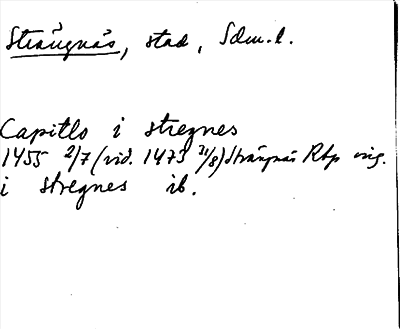 Strängnäs, stad, Sdm.l.
Capitlo i stregnes
1455 2/7 (vid. 1473 31/8) Strängnäs Rbp orig.
i stregnes ib.